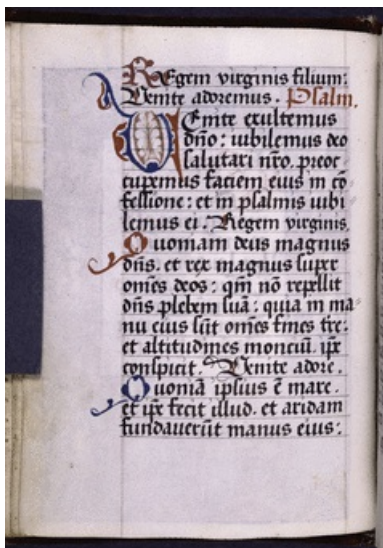 Regem virginis filium:
Venite adoremus. Psalm.
Venite exultemus
dño: iubilemus deo
salutari nr̄o. preoc
cupemus faciem eius in cō
fessione: et in psalmis iubi
lemus ei. Regem virginis.
Quoniam deus magnus
dñs. et rex magnus super
om̄es deos: qm̄ nō repellit
dñs plebem suā: quia in ma
nu eius sūt om̄es fines tr̄e:
et altitudines montiū. ip̄e
conspicit. Venite adore.
Quoniā ipsius ē mare.
et ip̄e fecit illud. et aridam
fundaverūt manus eius: